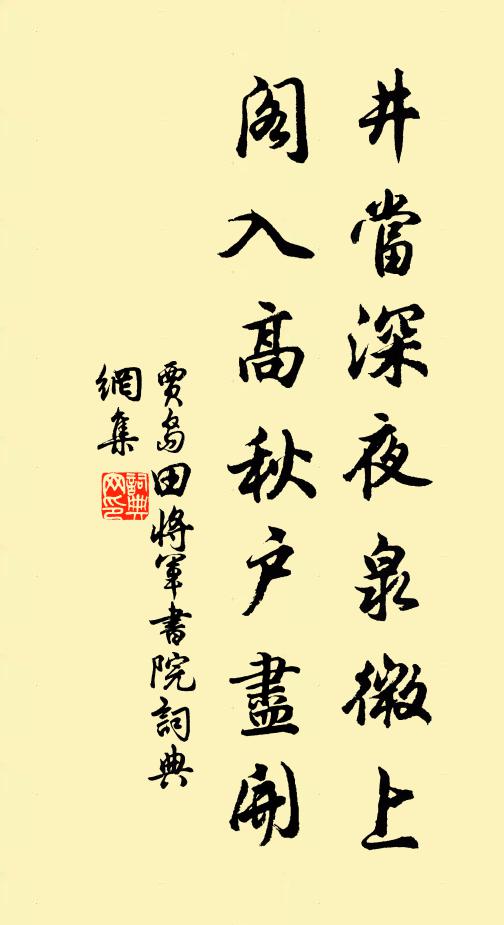 井當深夜泉微上
閣入高秋户盡開
賈島田將軍書院詞典
網集
詞典
网印